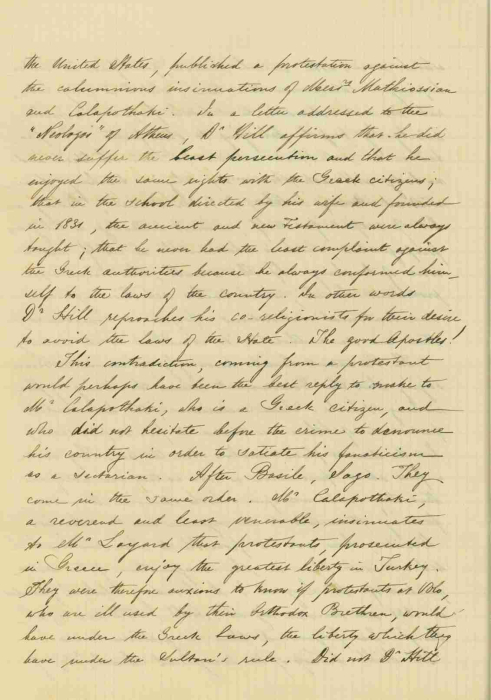 the United States, published a protestation against
the calumnious insinuations of Mess.rs Mathiossian
and Calapothaki. In a letter addressed to the
"Neologos" of Athens, Dr Hill affirms that he did
never suffer the least persecution and that he
enjoyed the same rights with the Greek citizens;
that in the school directed by his wife and founded
in 1831, the ancient and new Testament were always
taught; that he never had the least complaint against
the Greek authorities because he always conformed him-
self to the laws of the country. In other words
Dr Hill reproaches his co-religionists for their desire
to avoid the laws of the State. The good Apostles!
This contradiction, coming from a protestant
would perhaps have been the best reply to make to
Mr Calapothaki, who is a Greek citizen, and
who did not hesitate before the crime to denounce
his country in order to satiate his fanaticism
as a sectarian. After Basile, Iago. They
come in the same order. Mr Calapothaki,
a reverend and least venerable, insinuates
to Mr Layard that protestants, prosecuted
in Greece, enjoy the greatest liberty in Turkey.
They were therefore anxious to know if protestants at Volo,
who are ill used by their Orthodox Brethren, would
have under the Greek Laws, the liberty which they
have under the Sultan's rule. Did not Dr Hill